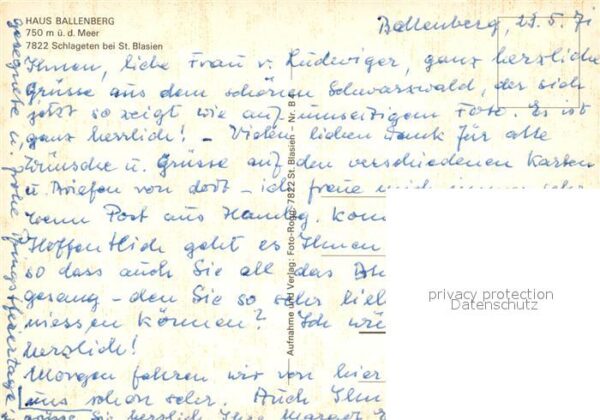 HAUS BALLENBERG
750 m ü. d. Meer
7822 Schlageten bei St. Blasien
Ballenberg, 23. 5. 71
Ihnen, liebe Frau v. Ludwiger, ganz herzliche
Grüsse aus dem schönen Schwarzwald, der sich
jetzt so zeigt wie auf umseitigem Foto. Es ist
ganz herrlich! – Vielen lieben Dank für alle
Wünsche u. Grüsse auf den verschiedenen Karten
u. Briefen von dort – ich freue mich immer sehr
wenn Post aus Hambg. kom
Hoffentlich geht es Ihnen
so dass auch Sie all das
gesang – den Sie so sehr lieb
niessen können? Ich wü
herzlich!
Morgen fahren wir von hier
uns schon sehr. Auch Ihn
Sie herzlich Ihre Margot
gesegnete u. frohe Pfingstfeiertage
Aufnahme und Verlag: Foto-Rogg, 7822 St. Blasien – Nr. B
privacy protection
Datenschutz